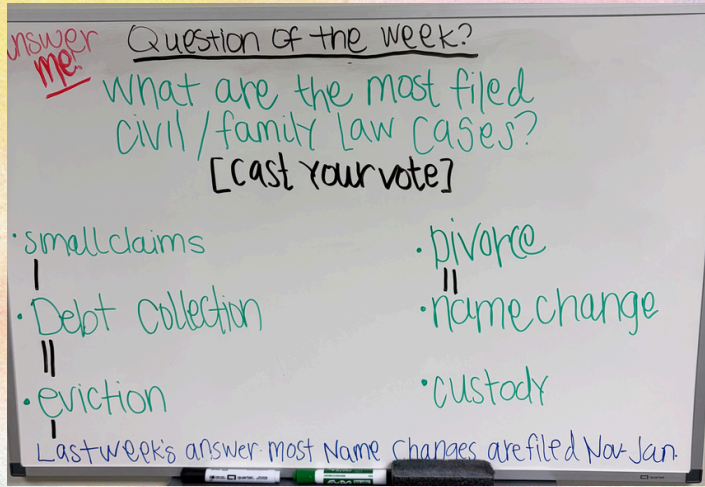 Answer Question of the week?
me!
What are the most filed
civil/family Law cases?
[Cast Your vote]
• small claims
|
• Debt collection
||
• eviction
|
• Divorce
||
• name change
• custody
Last week's answer: most Name Changes are filed Nov-Jan.